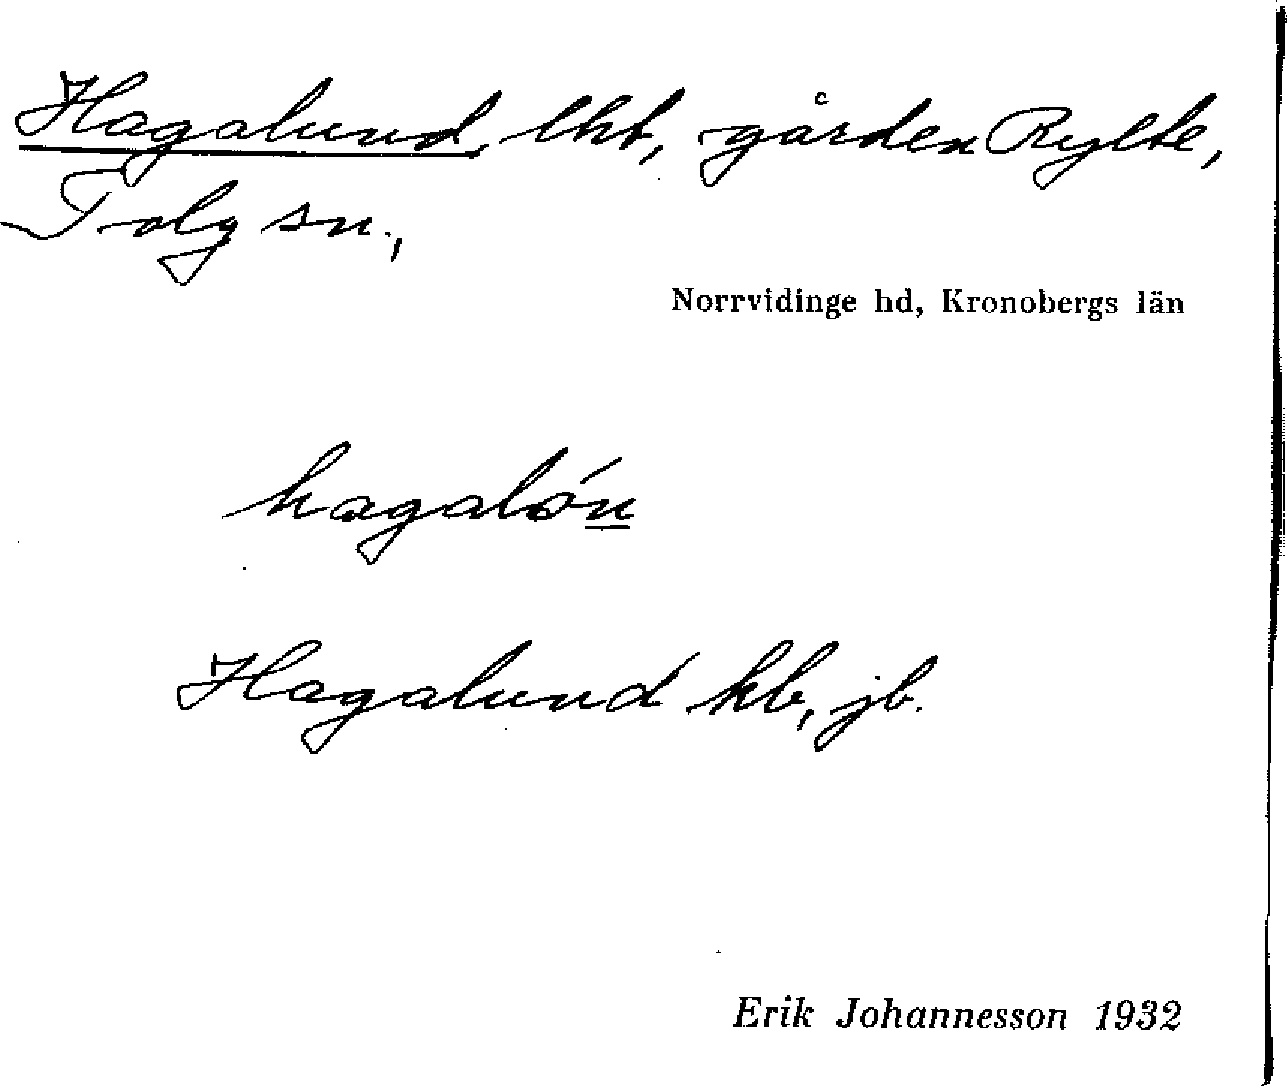 Hagalund, lht, gården Rylte,
Tolg sn.,
Norrvidinge hd, Kronobergs län
hagalón
Hagalund kb, jb.
Erik Johannesson 1932